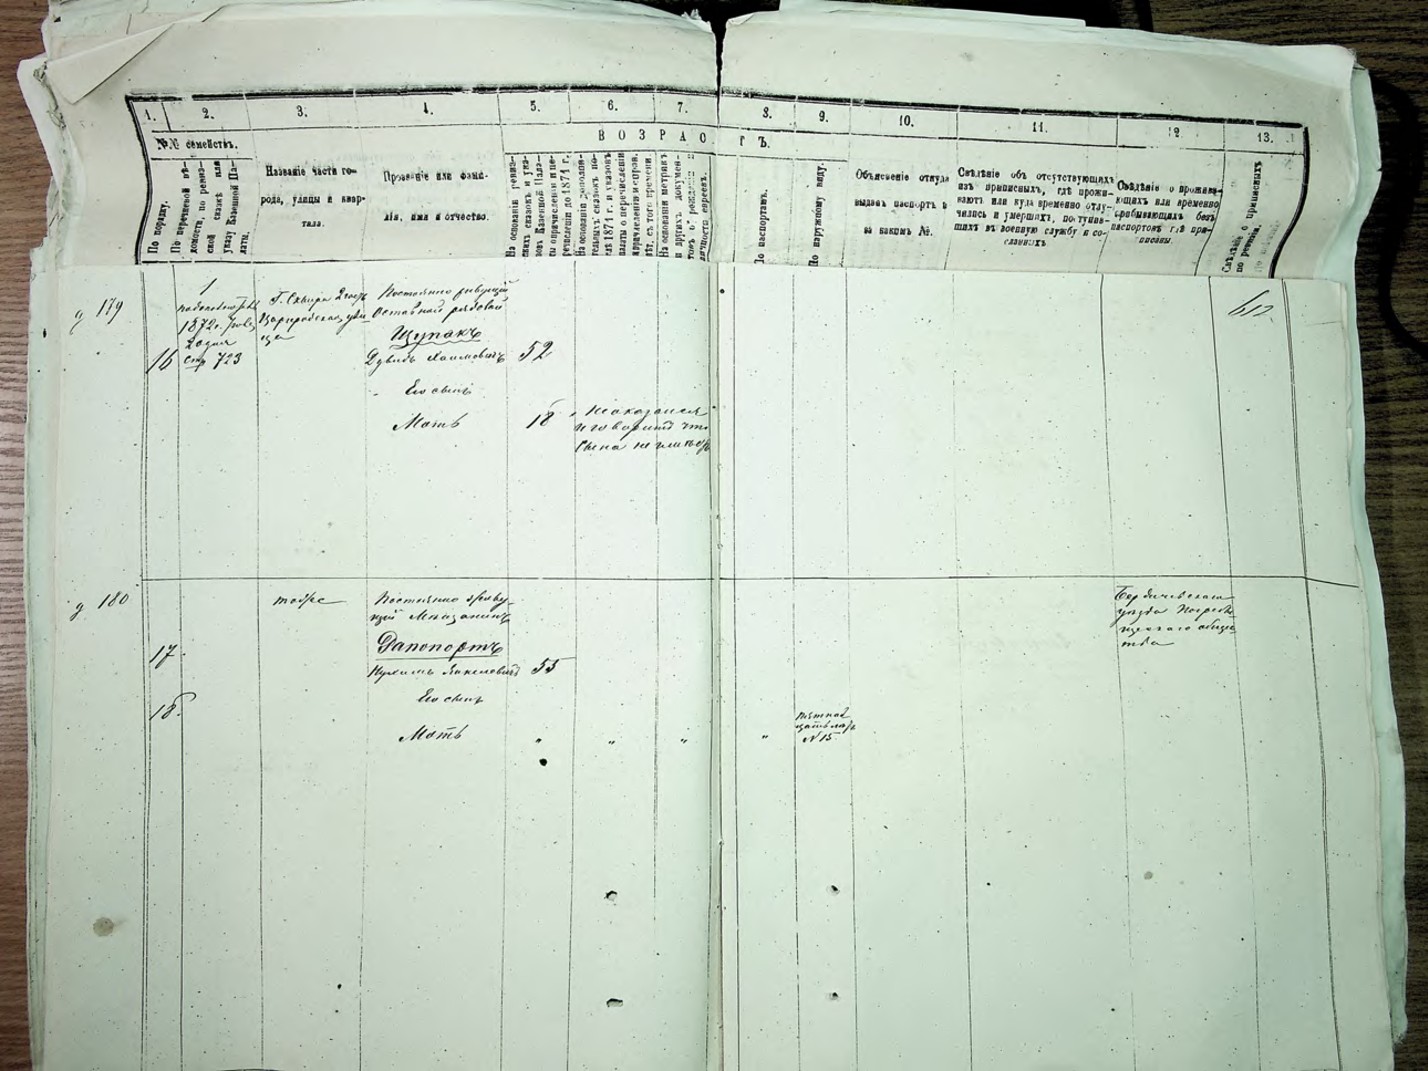 1. 2. 3. 4. 5. 6. 7. 8. 9. 10. 11. 12. 13.
№№ семействъ.
ВОЗРАС ТЪ.
По порядку.
По перечневой вѣ-
домости, по ревиз-
ской сказкѣ или
указу Казенной Па-
латы.
Названіе части го-
рода, улицы и квар-
тала.
Прозваніе или фами-
лія, имя и отчество.
На основаніи ревиз-
скихъ сказокъ и ука-
зовъ Казенной Пала-
ты о причисленіи и пе-
речисленіи до 1871 г.
На основаніи дополни-
тельныхъ сказокъ по-
слѣ 1871 г. и указовъ
палаты о перечисленіи
съ того времени.
На основаніи метрикъ
и другихъ докумен-
товъ о рожденіи и
личности евреевъ.
По паспортамъ.
По наружному виду.
Объясненіе откуда
выданъ паспортъ и
за какимъ №.
Свѣдѣніе объ отсутствующихъ
изъ приписныхъ, гдѣ прожи-
ваютъ или куда временно отлу-
чились и умершихъ, поступив-
шихъ въ военную службу и со-
сланныхъ
Свѣдѣніе о прожива-
ющихъ или временно
прибывающихъ безъ
паспортовъ гдѣ при-
писаны.
Свѣдѣніе о приписныхъ
по ревизіи,
179
1
1872 г.
стр 723
Г. Сквира 2 части
Постоянно живущій
Отставной рядовой
Щупакъ
16
Дувидъ Хаимовичъ 52
Его сынъ
Мотъ 18
Неоказался
и говоритъ что
сына не имѣетъ
612
180
тоже
Постоянно живу-
щій Мѣщанинъ
17.
Рапопортъ
55
18.
Его сынъ
Мотъ " " " "
№ 15
Бердичевскаго
уѣзда Погреби-
щскаго общес-
тва